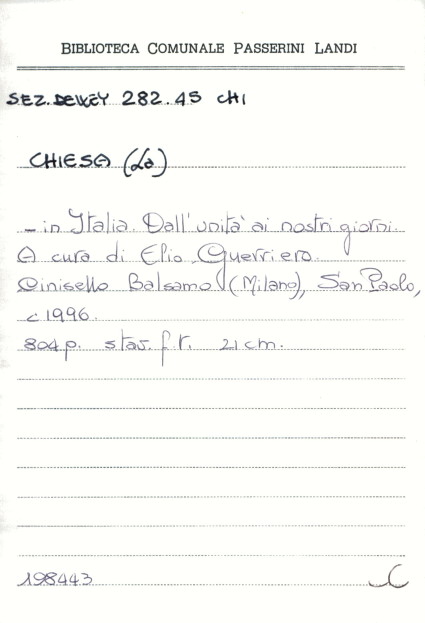 BIBLIOTECA COMUNALE PASSERINI LANDI
SEZ. DEWEY 282.45 CHI
CHIESA (La)
– in Italia. Dall'unità ai nostri giorni.
A cura di Elio Guerriero.
Cinisello Balsamo (Milano), San Paolo,
c1996.
804 p. stav. f.t. 21 cm.
198443